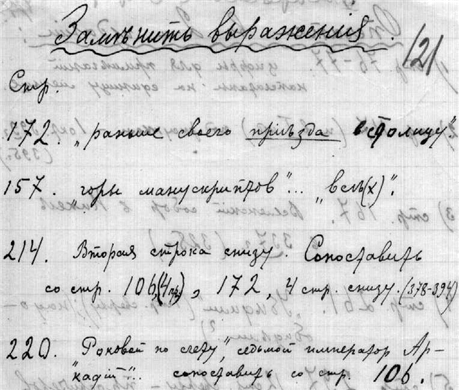 Замѣнить выраженiя
121
Стр.
172. „раньше своего прiѣзда въ столицу"
157. горы манускриптовъ"... "всѣ(х)".
214. Вторая строка снизу. Сопоставить
со стр. 106, 172, 4 стр. снизу. (378-394)
220. "Роковой по счету", седьмой император Ар-
кадiй"... сопоставить со стр. 106.